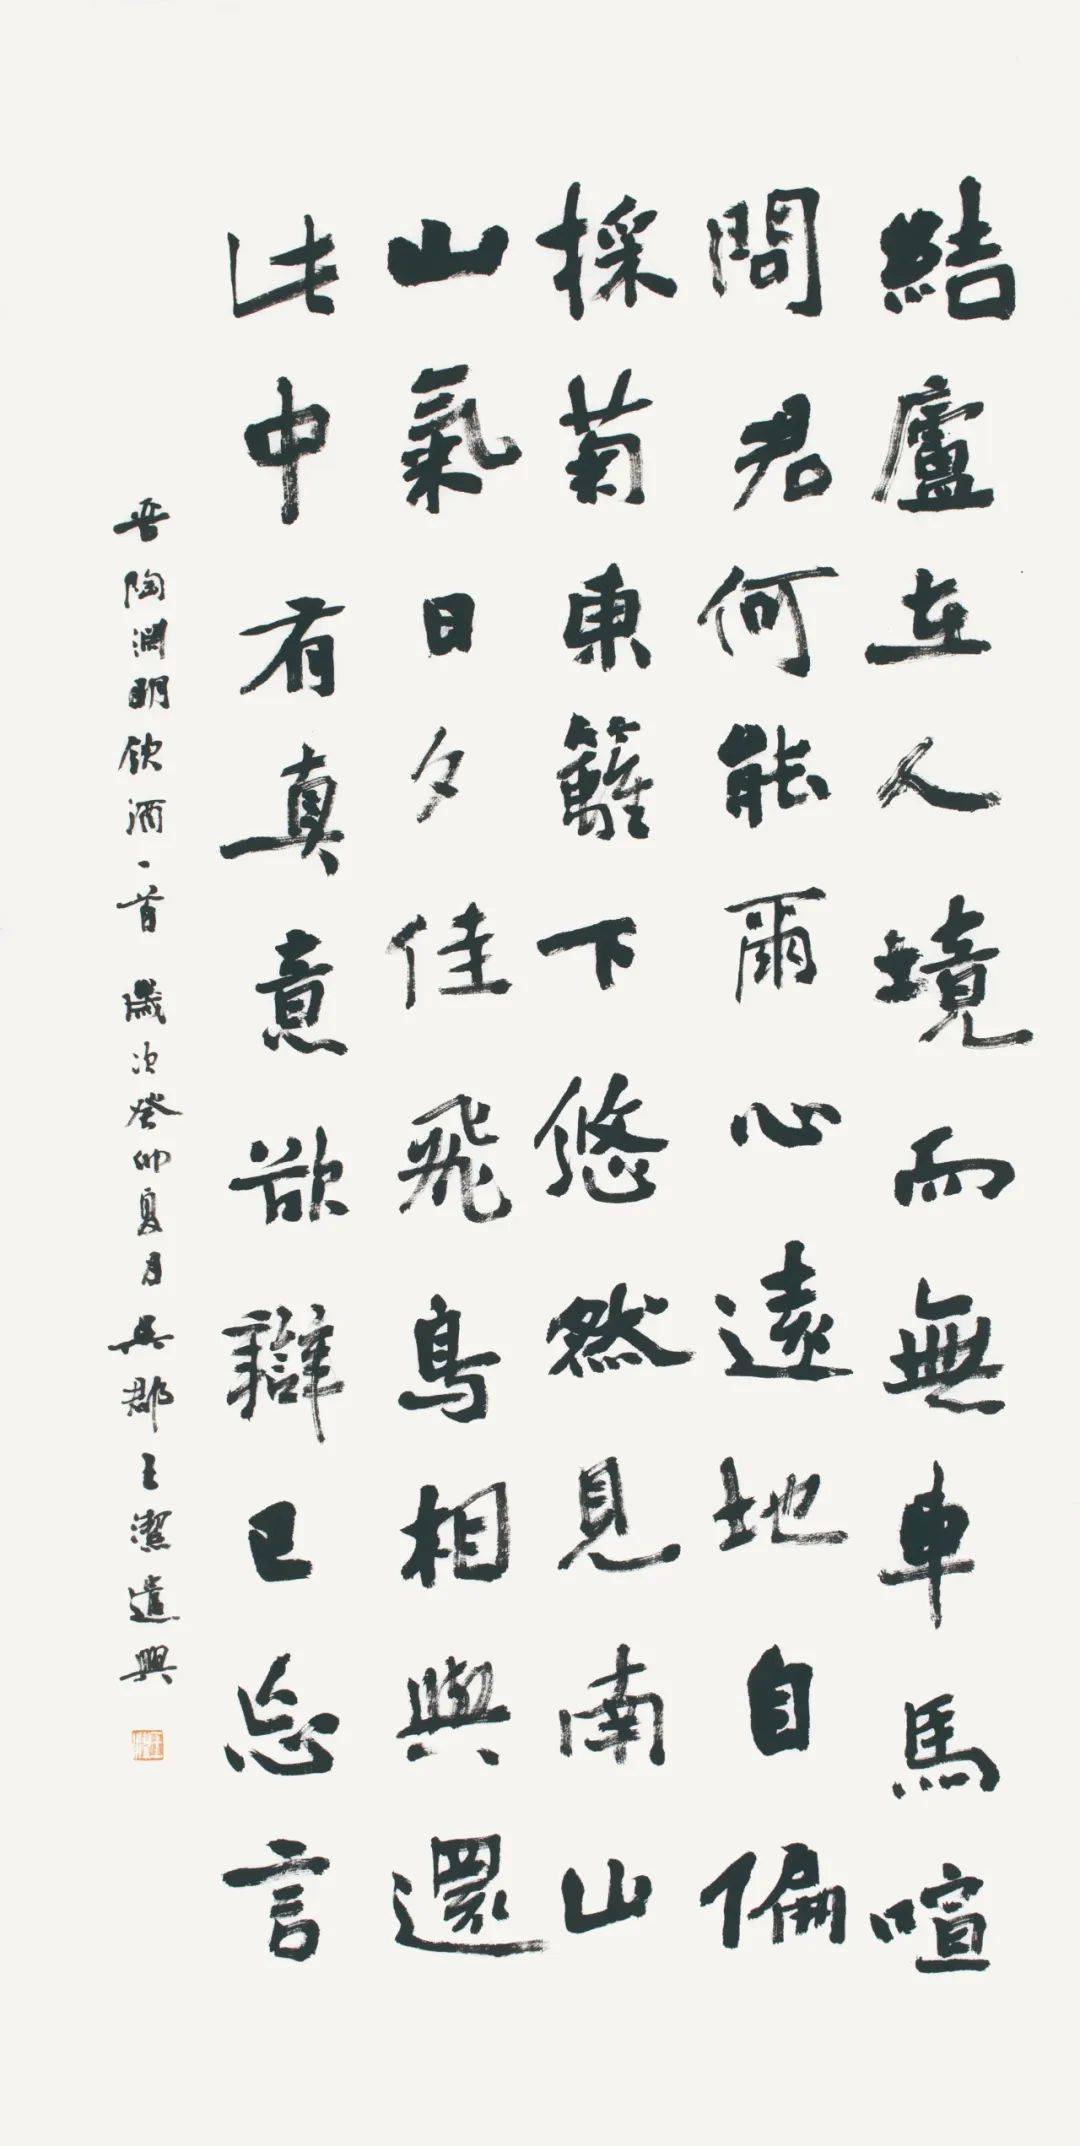 結廬在人境而無車馬喧
問君何能爾心遠地自偏
採菊東籬下悠然見南山
山氣日夕佳飛鳥相與還
此中有真意欲辯已忘言
晉陶淵明飲酒一首 歲次癸卯夏月吳郡王潔遣興